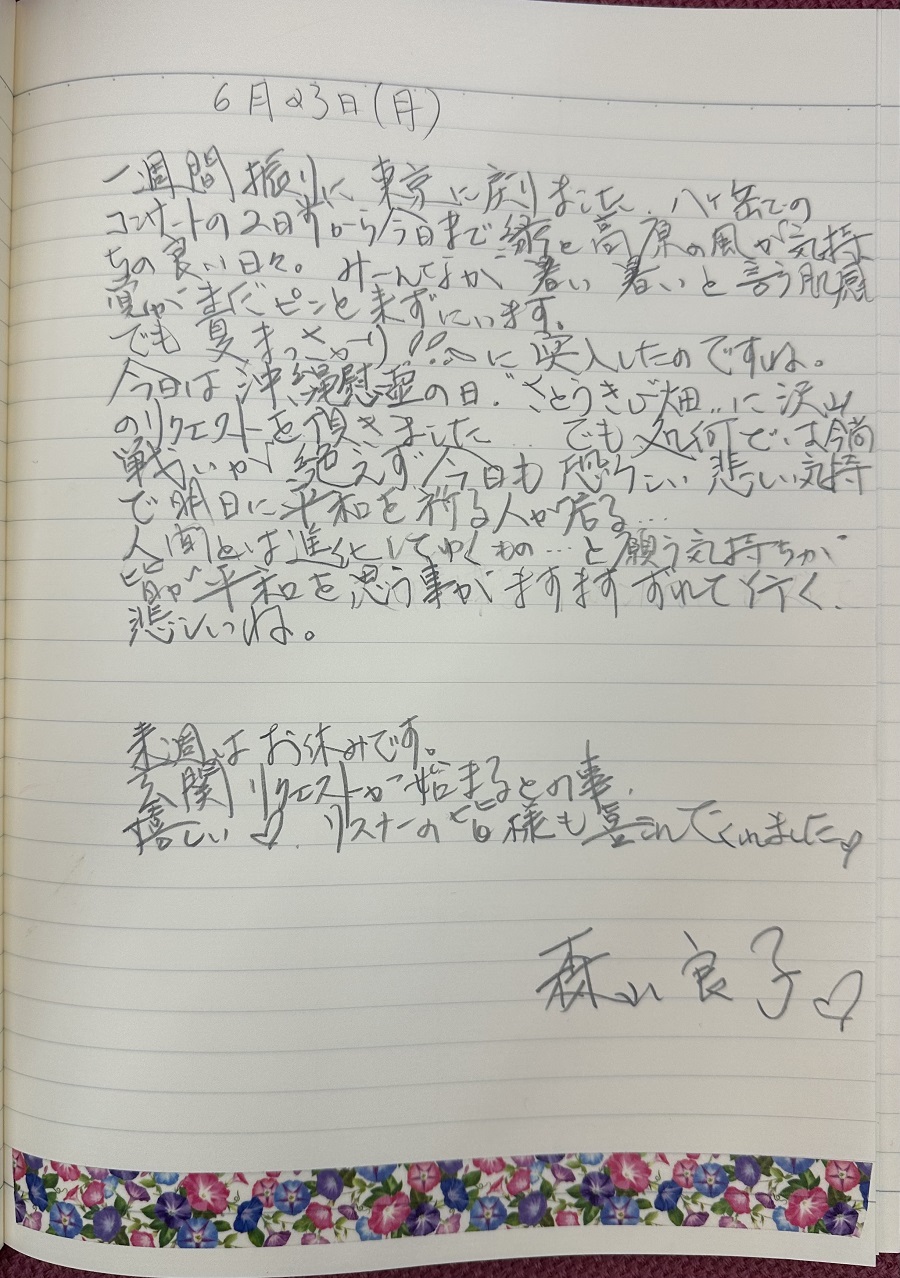 6月23日(月)
一週間振りに東京に戻りました、八ヶ岳での
コンサートの2日前から今日まで緑と高原の風が気持
ちの良い日々。みーんなが暑い暑いと言う肌感
覚がまだピンと来ずにいます。
でも夏まっさかり!!に突入したのですね。
今日は沖縄慰霊の日、"さとうきび畑"に沢山
のリクエストを頂きました…でも処何では今尚
戦いが絶えず今日も恐ろしい悲しい気持
で明日に平和を祈る人が居る…
人間とは進化してゆくもの…と願う気持ちが
皆が平和を思う事がますますずれて行く、
悲しいね。
来週はお休みです。
玄関リクエストが始まるとの事、
嬉しい♡、リスナーの皆様も喜こんでくれました♡
森山良子♡